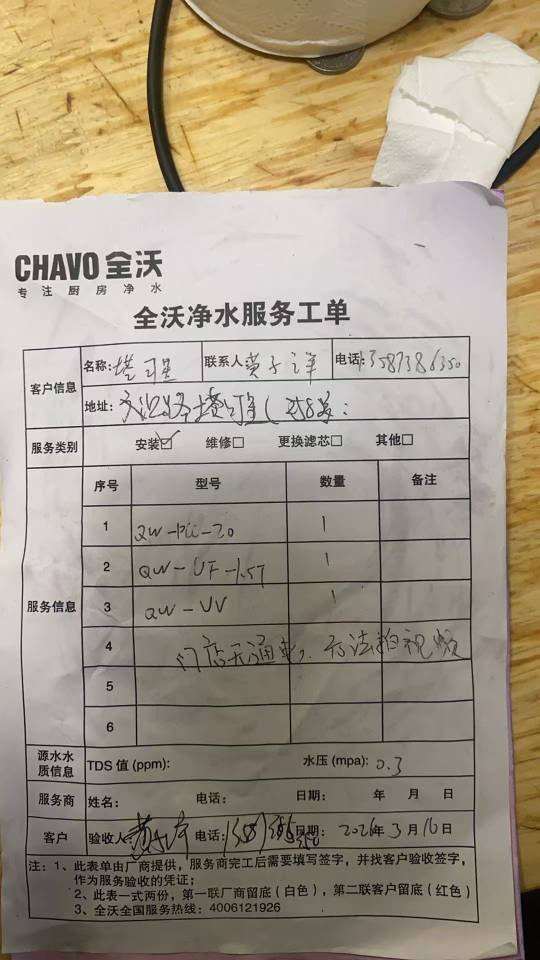 CHAVO 全沃
专注厨房净水
全沃净水服务工单
客户信息
名称: 塔可星 联系人 黄子洋 电话: 13587386350
地址: 塔可星
服务类别 安装☑ 维修□ 更换滤芯□ 其他□
服务信息
序号 型号 数量 备注
1 QW-PCC-20 1
2 QW-UF-1.5T 1
3 QW-UV 1
4 门店无通电, 无法拍视频
5
6
源水水质信息 TDS 值 (ppm): 水压 (mpa): 0.3
服务商 姓名: 电话: 日期: 年 月 日
客户 验收人: 电话: 日期: 2026年3月16日
注: 1、此表单由厂商提供，服务商完工后需要填写签字，并找客户验收签字，
作为服务验收的凭证；
2、此表一式两份，第一联厂商留底（白色），第二联客户留底（红色）
3、全沃全国服务热线: 4006121926